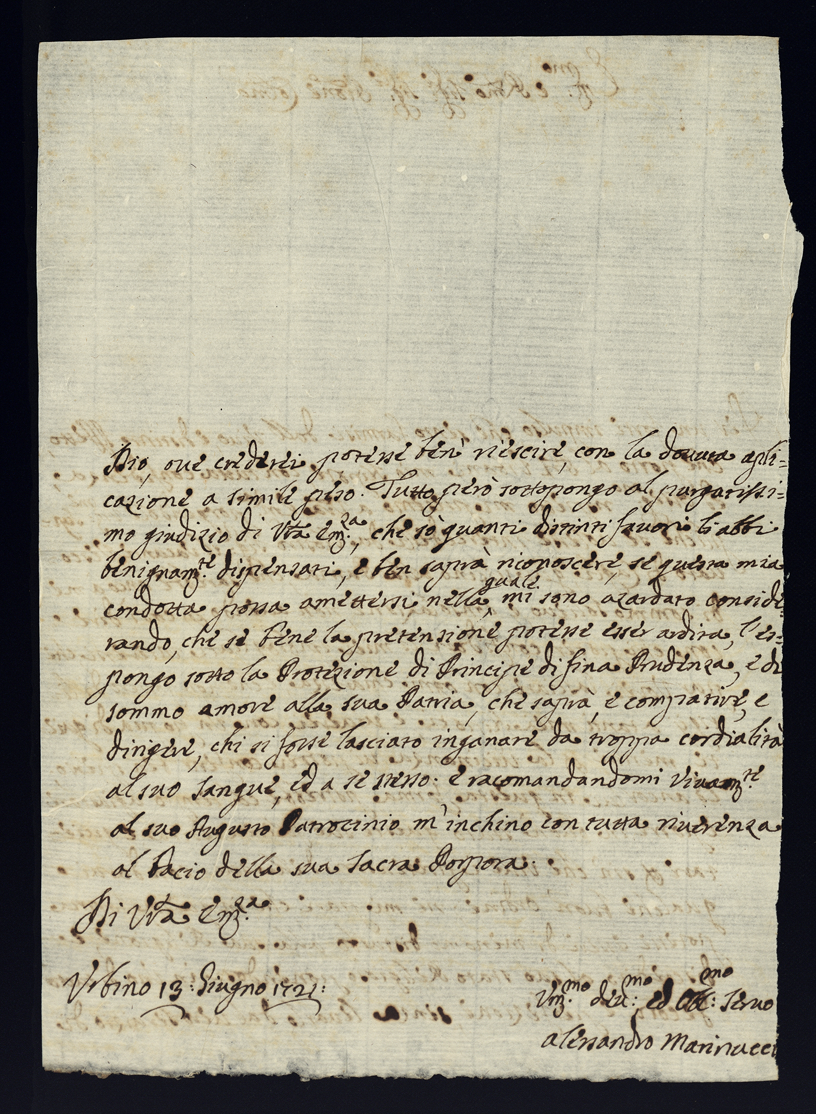 Dio, ove crederei potesse ben riescire, con la dovuta apli=
cazione a simile peso. Tutto però sottopongo al purgatissi=
mo giudizio di Vra Emza, che sò quanti distinti favori li abbi
benignamte dispensati, e ben saprà riconoscere, se questa mia
condotta possa amettersi nella quale mi sono azardato conside=
rando, che se bene la pretensione potesse esser ardita, l'es=
pongo sotto la Protezione di Principe di fina Prudenza, e di
sommo amore alla sua Patria, che saprà, e compatire, e
dirigere, chi si fosse lasciato inganare da troppa cordialità
al suo Sangue, ed a se stesso: e racomandandomi vivamte
al suo Augusto Patrocinio m'inchino con tutta riverenza
al Bacio della sua Sacra Porpora.
Di Vra Emza
Urbino 13: Giugno 1721:
Ummo devmo: ed Obmo: Servo
Alessandro Marinucci